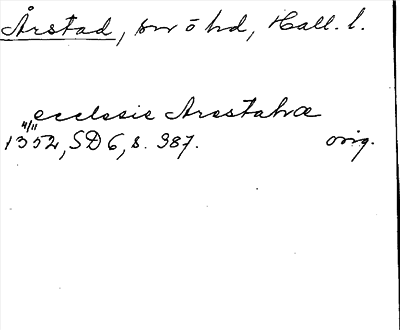 Årstad, sn o hd, Hall. l.
ecclesie Arestahæ
4/11
1352, SD 6, s. 387. orig.